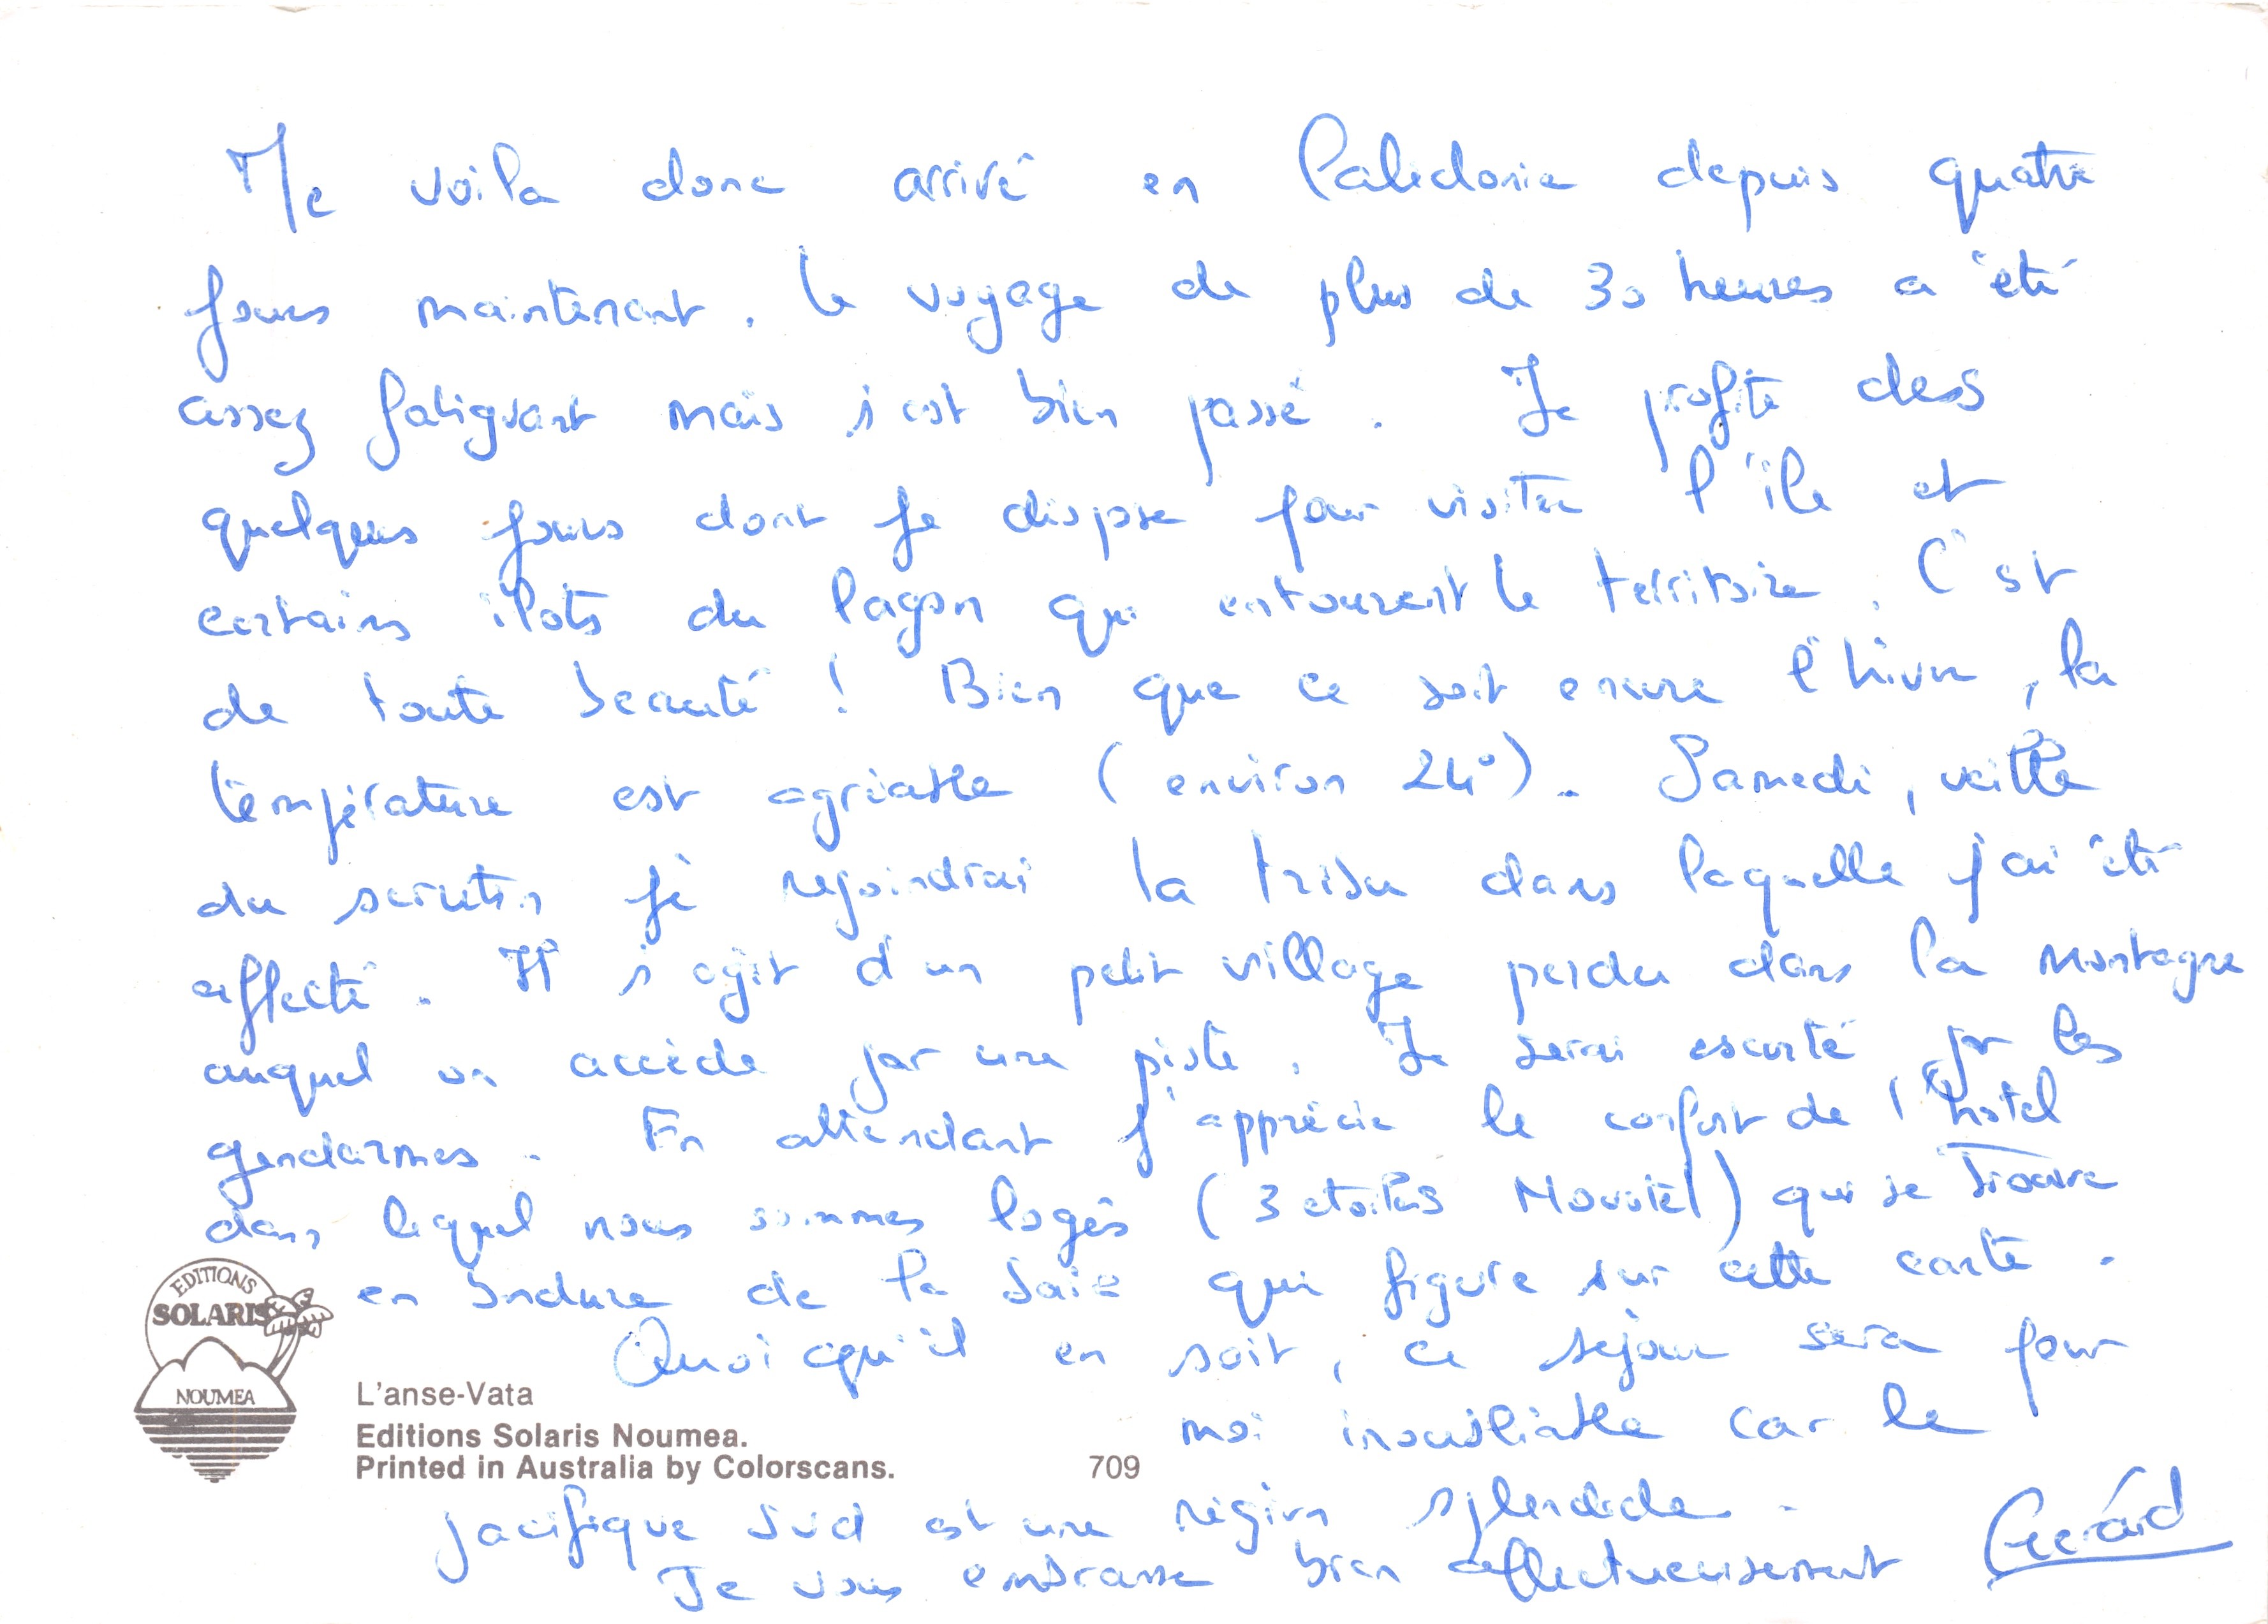 Me voila donc arrivé en Calédonie depuis quatre
jours maintenant. Le voyage de plus de 30 heures a été
assez fatiguant mais s'est bien passé. Je profite des
quelques jours dont je dispose pour visiter l'île et
certains îlots du lagon qui entourent le territoire. C'est
de toute beauté ! Bien que ce soit encore l'hiver, la
température est agréable (environ 24°). Samedi, veille
du scrutin je rejoindrai la tribu dans laquelle j'ai été
affecté. Il s'agit d'un petit village perdu dans la montagne
auquel on accède par une piste. Je serai escorté par les
gendarmes. En attendant j'apprécie le confort de l'hôtel
dans lequel nous sommes logés (3 etoiles Novotel) qui se trouve
en bordure de la baie qui figure sur cette carte.
Quoi qu'il en soit, ce séjour sera pour
moi inoubliable car le
pacifique sud est une région splendide.
Je vous embrasse bien affectueusement Gérard
EDITIONS
SOLARIS
NOUMEA
L'anse-Vata
Editions Solaris Noumea.
Printed in Australia by Colorscans. 709